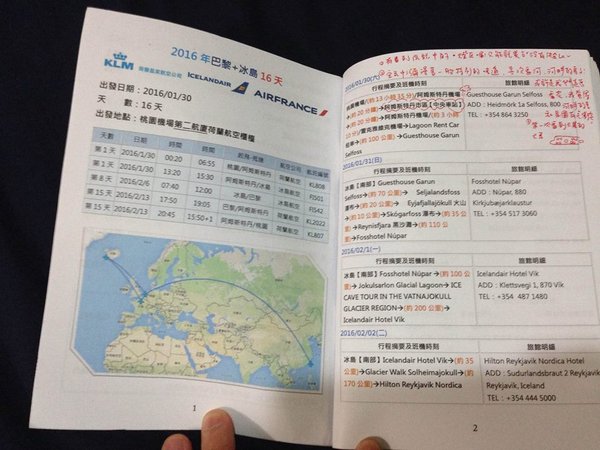 2016 年巴黎+冰島 16 天
KLM
荷蘭皇家航空公司
ICELANDAIR
AIRFRANCE
出發日期：2016/01/30
天 數：16 天
出發地點：桃園機場第二航廈荷蘭航空櫃檯
天數 日期 時間 起飛/抵達 航空公司 航班編號
第 1 天 2016/1/30 00:20 06:55 桃園/阿姆斯特丹 荷蘭航空 KL808
第 1 天 2016/1/30 13:20 15:30 阿姆斯特丹/冰島 冰島航空 FI501
第 8 天 2016/2/6 07:40 12:00 冰島/巴黎 冰島航空 FI542
第 15 天 2016/2/13 17:50 19:05 巴黎/阿姆斯特丹 荷蘭航空 KL2022
第 15 天 2016/2/13 20:45 15:50+1 阿姆斯特丹/桃園 荷蘭航空 KL807
1
2016/01/30(六)
行程摘要及班機時刻
桃園機場/(約 13 小時 35 分)/阿姆斯特丹機場
(約 20 分鐘)→阿姆斯特丹市區【中央車站】
(約 20 分鐘)→阿姆斯特丹機場/(約 3 小時
10 分)/雷克雅維克機場→Lagoon Rect Car
→(約 100 公里)→Guesthouse Garun
Selfoss
Guesthouse Garun
Selfoss
ADD：Heidmörk 1a Selfoss, 800
TEL：+354 864 3250
2016/01/31(日)
行程摘要及班機時刻 旅館明細
冰島【南部】Guesthouse Garun
Selfoss→(約 70 公里)→Seljalandsfoss
瀑布→(約 20 公里)→Eyjafjallajökull 火山
→(約 10 公里)→Skógarfoss 瀑布→(約 35 公
里)→Reynisfjara 黑沙灘→(約 110 公
里)→Fosshotel Núpar
Fosshotel Núpar
ADD：Núpar, 880
Kirkjubæjarklaustur
TEL：+354 517 3060
2016/02/01(一)
行程摘要及班機時刻 旅館明細
冰島【南部】Fosshotel Núpar→(約 100 公
里)→Jokulsarlon Glacial Lagoon→ICE
CAVE TOUR IN THE VATNAJOKULL
GLACIER REGION→(約 200 公里)→
Icelandair Hotel Vik
Icelandair Hotel Vik
ADD：Klettsvegi 1, 870 Vik
TEL：+354 487 1480
2016/02/02(二)
行程摘要及班機時刻 旅館明細
冰島【南部】Icelandair Hotel Vik→(約 35
公里)→Glacier Walk Solheimajokull→(約
170 公里)→Hilton Reykjavik Nordica
Hilton Reykjavik Nordica Hotel
ADD：Sudurlandsbraut 2 Reykjavik
Reykjavik, Iceland
TEL：+354 444 5000
2